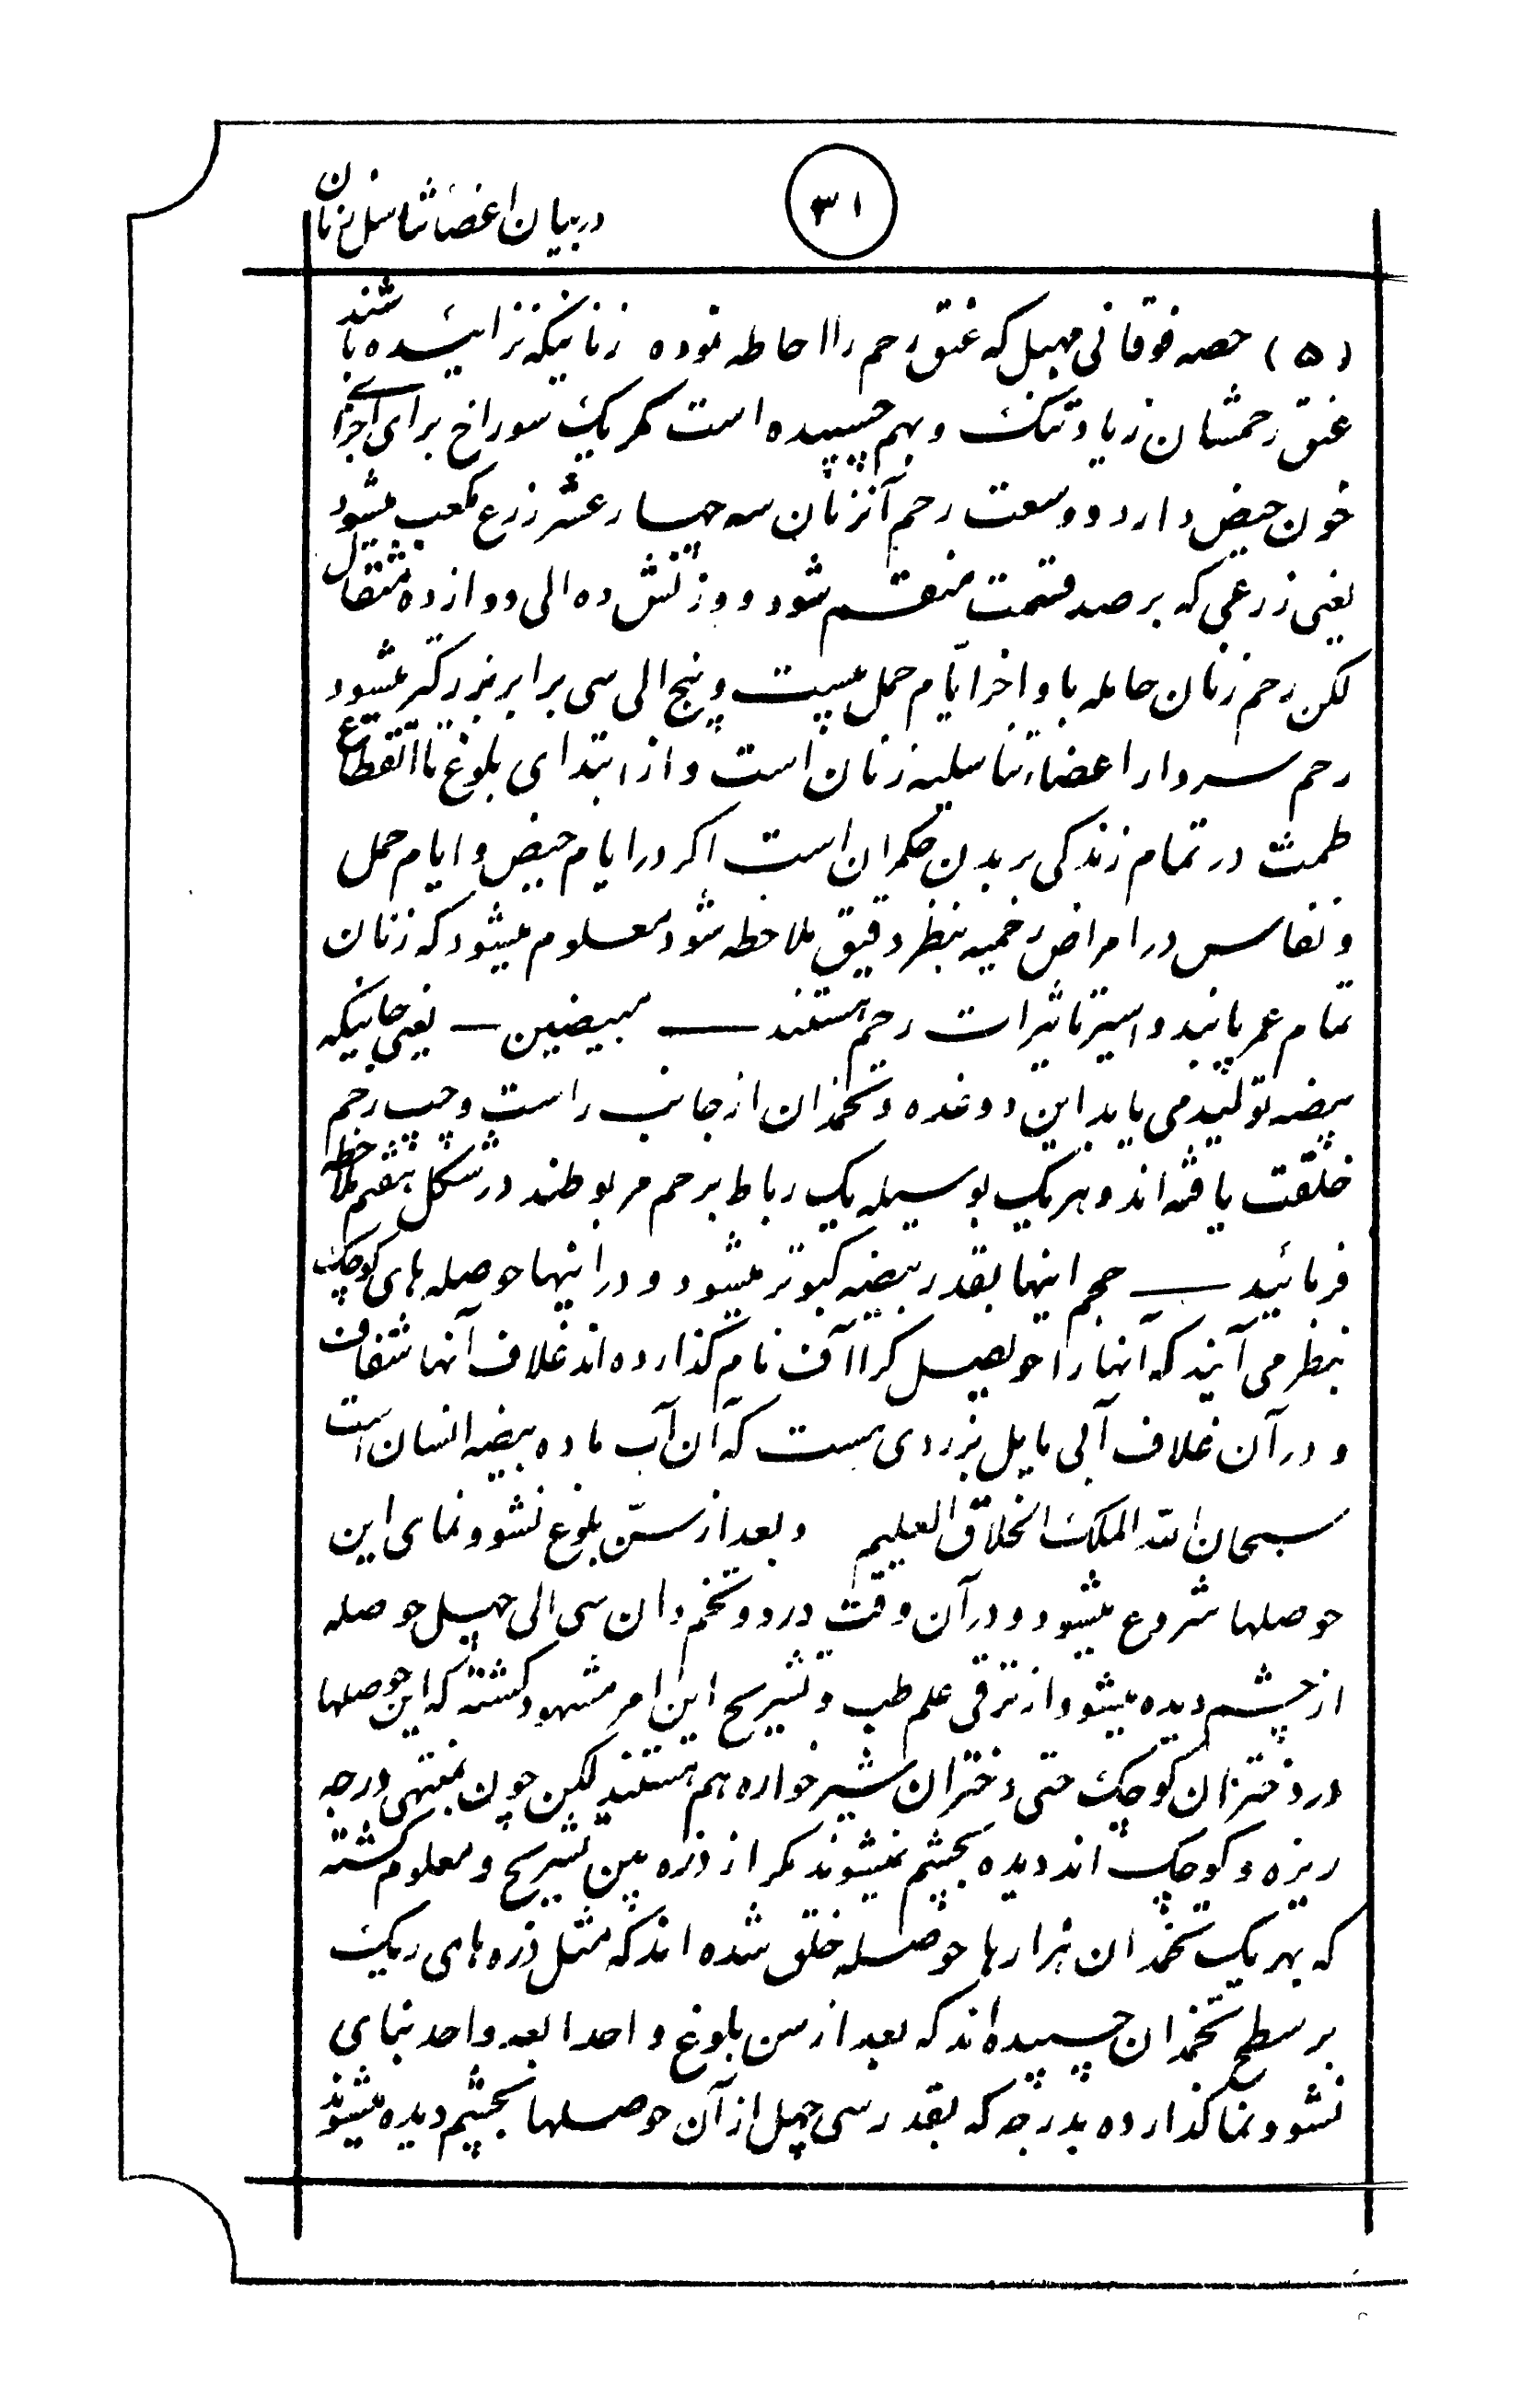 ۳۱
در بیان اعضا تناسل زنان
(۵) حصه فوقانی مهبل که عنق رحم را احاطه نموده زنانیکه نزائیده باشند
عنق رحمشان زیاد تنگ و بهم چسپیده است که یک سوراخ برای اجرای
خون حیض دارد و وسعت رحم آنزنان سه چهار عشر زرع مکعب میشود
یعنی زرعی که بر صد قسمت منقسم شود و وزنش ده الی دوازده مثقال
لکن رحم زنان حامله باواخر ایّام حمل بیست و پنج الی سی برابر بزرگتر میشود
رحم سردار اعضاء تناسلیه زنان است و از ابتدای بلوغ تا انقطاع
طمث در تمام زندگی بر بدن حکمران است اگر در ایام حیض و ایام حمل
و نفاس در امراض رحمیه بنظر دقیق ملاحظه شود معلوم میشود که زنان
تمام عمر پابند و اسیر تاثیرات رحم هستند — مبیضین — یعنی جائیکه
بیضه تولید می یابد این دو غده و تخمدان از جانب راست و چپ رحم
خلقت یافته اند و هر یک بوسیله یک رباط برحم مربوطند در شکل هفتم ملاحظه
فرمائید — حجم اینها بقدر بیضه کبوتر میشود و در اینها حوصله های کوچک
بنظر می آیند که آنها را حویصل کراآف نام گذارده اند غلاف آنها شفاف
و در آن غلاف آبی مایل بزردی هست که آن آب ماده بیضه انسان است
سبحان الله الملک الخلاق العلیم و بعد از سنّ بلوغ نشو و نمای این
حوصلها شروع میشود و در آن وقت در دو تخم دان سی الی چهل حوصله
از چشم دیده میشود از ترقی علم طب و تشریح این امر مشهود گشته که این حوصلها
در دختران کوچک حتی دختران شیرخواره هم هستند لکن چون بمنتهی درجه
ریزه و کوچک اند دیده بچشم نمیشوند مگر از ذره بین تشریح و معلوم گشته
که بهر یک تخمدان هزارها حوصله خلق شده اند که مثل ذره های ریگ
بر سطح تخمدان چسپیده اند که بعد از سن بلوغ واحدا بعد واحد بنای
نشو و نما گذارده بدرجه که بقدر سی چهل از آن حوصلها بچشم دیده میشوند